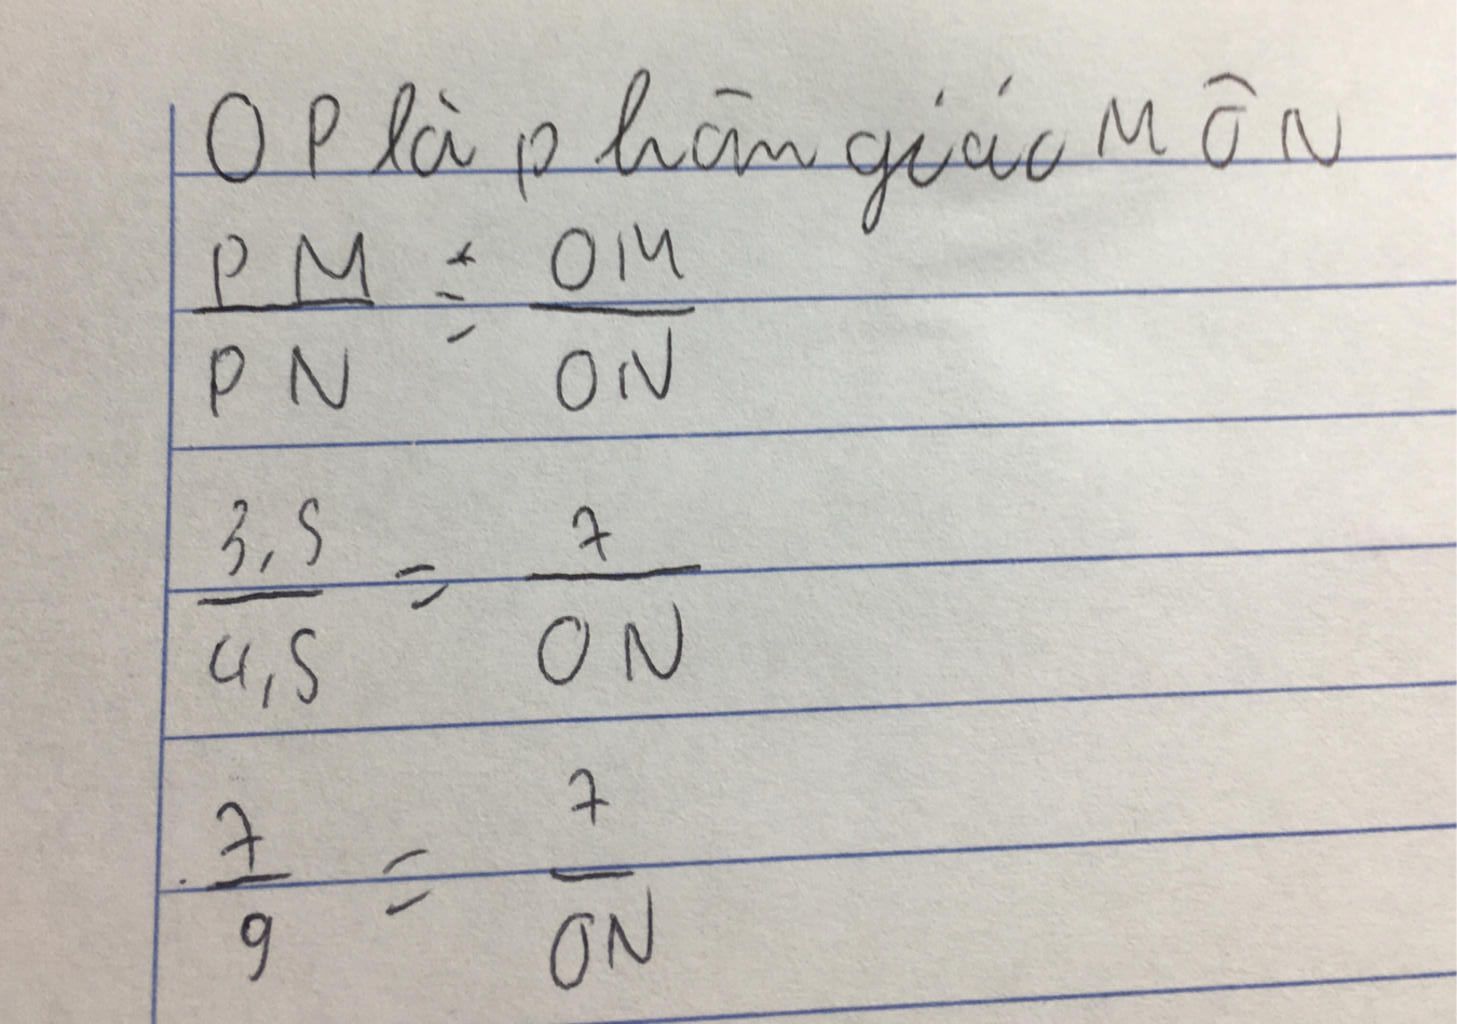 OP là phân giác MÔN
PM/PN = OM/ON
3,5/4,5 = 7/ON
7/9 = 7/ON